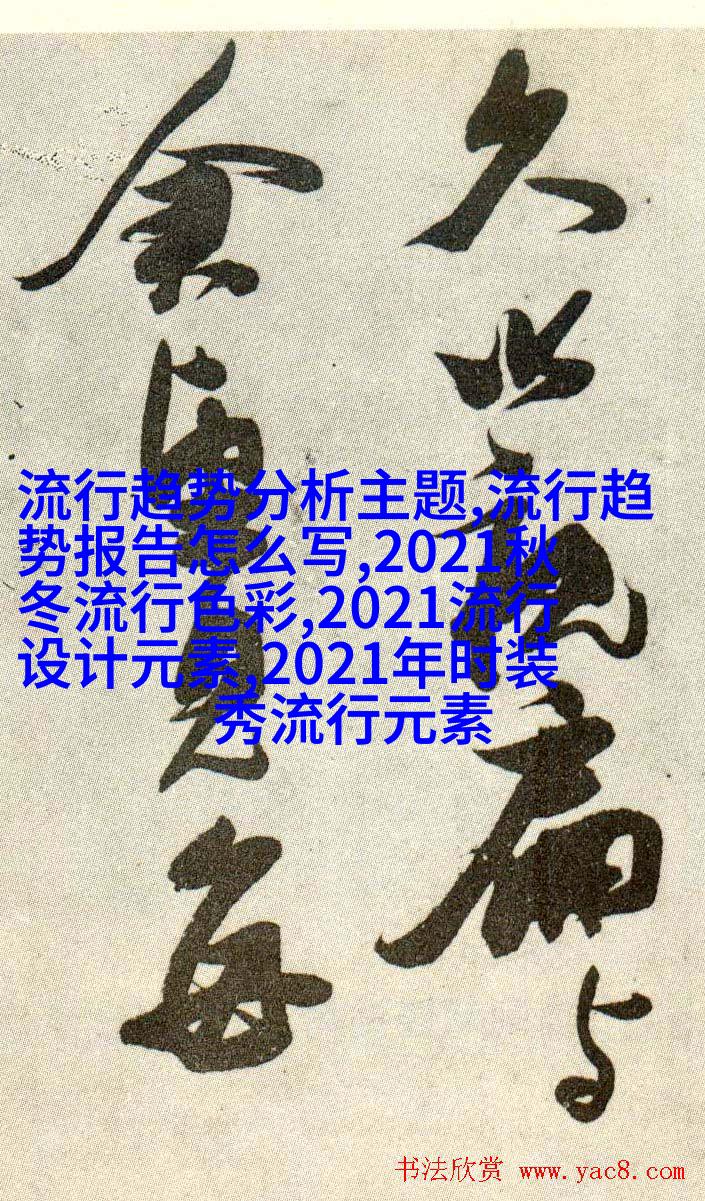 久此扁与
余見每
流行趋势分析主题,流行趋
势报告怎么写,2021秋
冬流行色彩,2021流行
设计元素,2021年时装
秀流行元素
书法欣赏 www.yac8.com